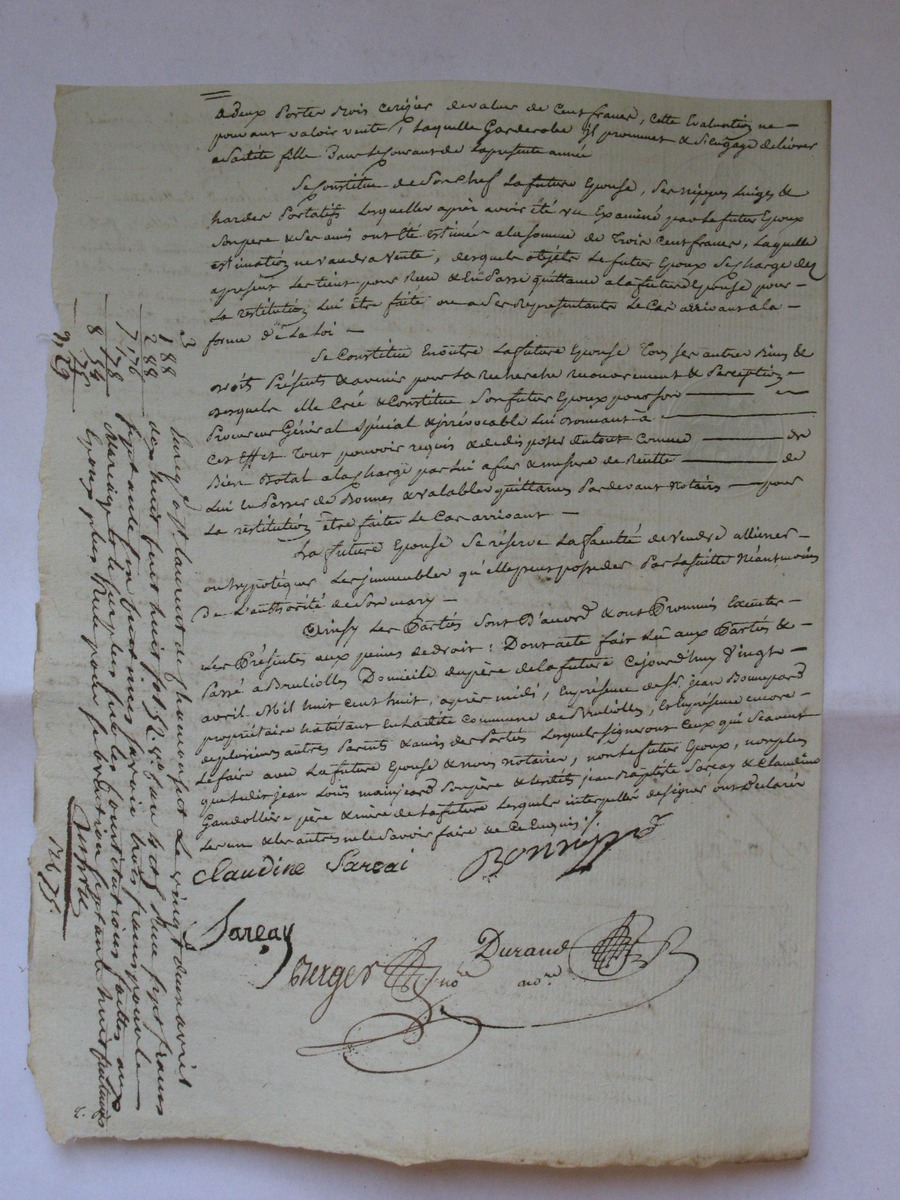 a deux Portes Bois cerisier de valeur de Cent francs, cette Evaluation ne
pouvant valoir vente, Laquelle Garderobe il prommet & s'Engage delivrer
a Saditte fille Dans le Courant de la presente année
Se Constitue de Son chef La future Epouse, Ses nippes Linges &
hardes Portatifs Lesquelles après avoir été vu Examiné par Le futur Epoux
Son pere & Ses amis ont été estimées a la somme de Trois Cent francs, Laquelle
estimation ne vaudra Vente, desquels objets Le futur Epoux Se charge des
a présent Les tient pour Reçu & En Passe quittance a la future Epouse pour
La restitution Lui être faite ou a Ses Représentants Le Cas arrivant a la
forme de La Loi
Se Constitue En outre La future Epouse Tous Ses autres Biens &
Droits Présents & avenir pour La Recherche Recouvrement & Perception
desquels elle Crée & Constitue Son futur Epoux pour Son
Procureur Général Spécial & irrévocable Lui donnant à
Cet Effet Tout pouvoir requis & de disposer du tout Comme de
Bien Dotal a la charge par Lui a fur & mesure de Recette de
Lui En Passer de Bonnes & valables quittances Pardevant Notaire pour
La restitution être faite Le Cas arrivant
La future Epouse Se réserve La faculté de Vendre alliener
ou hypotéquer Les immeubles qu'elle peut posseder Par La suitte Néantmoins
De L'authorité de Son mary
Ainsy Les Parties Sont D'accord & ont Promis Exécuter
Les Présentes aux peines de droit : Dont acte fait Lu aux Parties &
Passé a Brullioles Domicile du père de la future Cejourd'huy Vingt
avril Mil huit Cent huit, après midi, En présence de Sr. jean Bonnepard
propriétaire habitant En Laditte Commune de Brullioles, Et En présence encore
de plusieurs autres Parents & amis des Parties Lesquels Signeront Ceux qui Scavent
Le faire avec La future Epouse & nous Notaires, non Le futur Epoux, non plus
que Ledit jean Loüis mainjeard Son père & Lesdits jean Baptiste Sarçay & Claudine
Gaudollière père & mère de La future Lesquels interpellés de Signer ont Déclaré
Les uns & Les autres ne le Savoir faire de Ce Enquis ./.
Claudine Sarsai
Sarçay
Berger nore
Durand nore
3
1 88
2 88
7,, 76
1,, 78
8 54
75
9,, 29
Enreg. à St. Laurent de Chamousset Le vingt deux avril
dix huit Cent huit, fo. 152 Reçu Sept francs
Septante Six Cent
Mariage & de plus sur les constitutions faites aux
Epoux, plus Reçu pour Subvention Septante huit Centimes